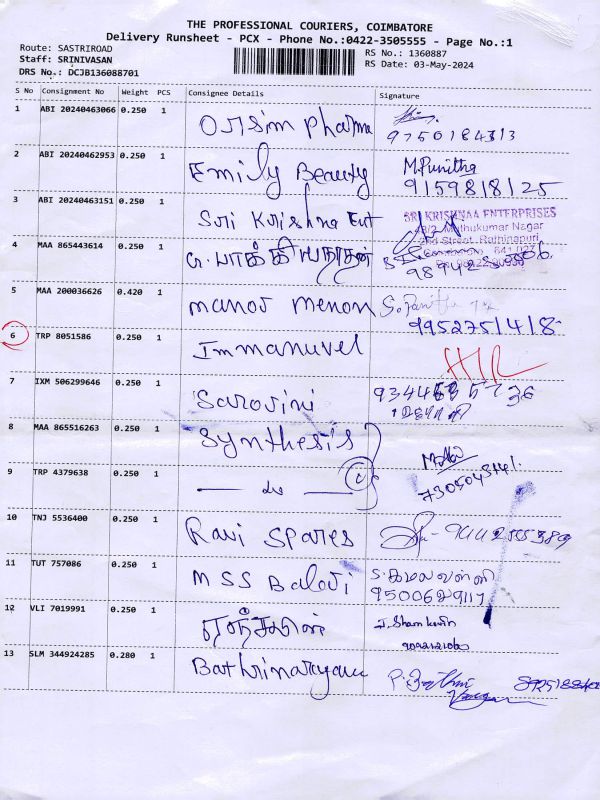 THE PROFESSIONAL COURIERS, COIMBATORE
Delivery Runsheet - PCX - Phone No.:0422-3505555 - Page No.:1
Route: SASTRIROAD
RS No.: 1360887
Staff: SRINIVASAN
RS Date: 03-May-2024
DRS No.: DCJB136088701
S No Consignment No Weight PCS Consignee Details Signature
1 ABI 20240463066 0.250 1 Orsim pharma
9750184313
2 ABI 20240462953 0.250 1 Emily Beauty M.Punitha
9159818125
3 ABI 20240463151 0.250 1 Sri Krishna Ent SRI KRISHNAA ENTERPRISES
Muthukumar Nagar
2nd Street, Rathinapuri
4 MAA 865443614 0.250 1 G. பாக்கியநாதன்
5 MAA 200036626 0.420 1 manoj menon
9952751418
6 TRP 8051586 0.250 1 Immanuvel
7 IXM 506299646 0.250 1 Sarojini
8 MAA 865516263 0.250 1 Synthesis
9 TRP 4379638 0.250 1 do
10 TNJ 5536400 0.250 1 Ravi Spares
11 TUT 757086 0.250 1 MSS Balaji S. கமலவள்ளி
9500629117
12 VLI 7019991 0.250 1
13 SLM 344924285 0.280 1 Bathrinarayanan